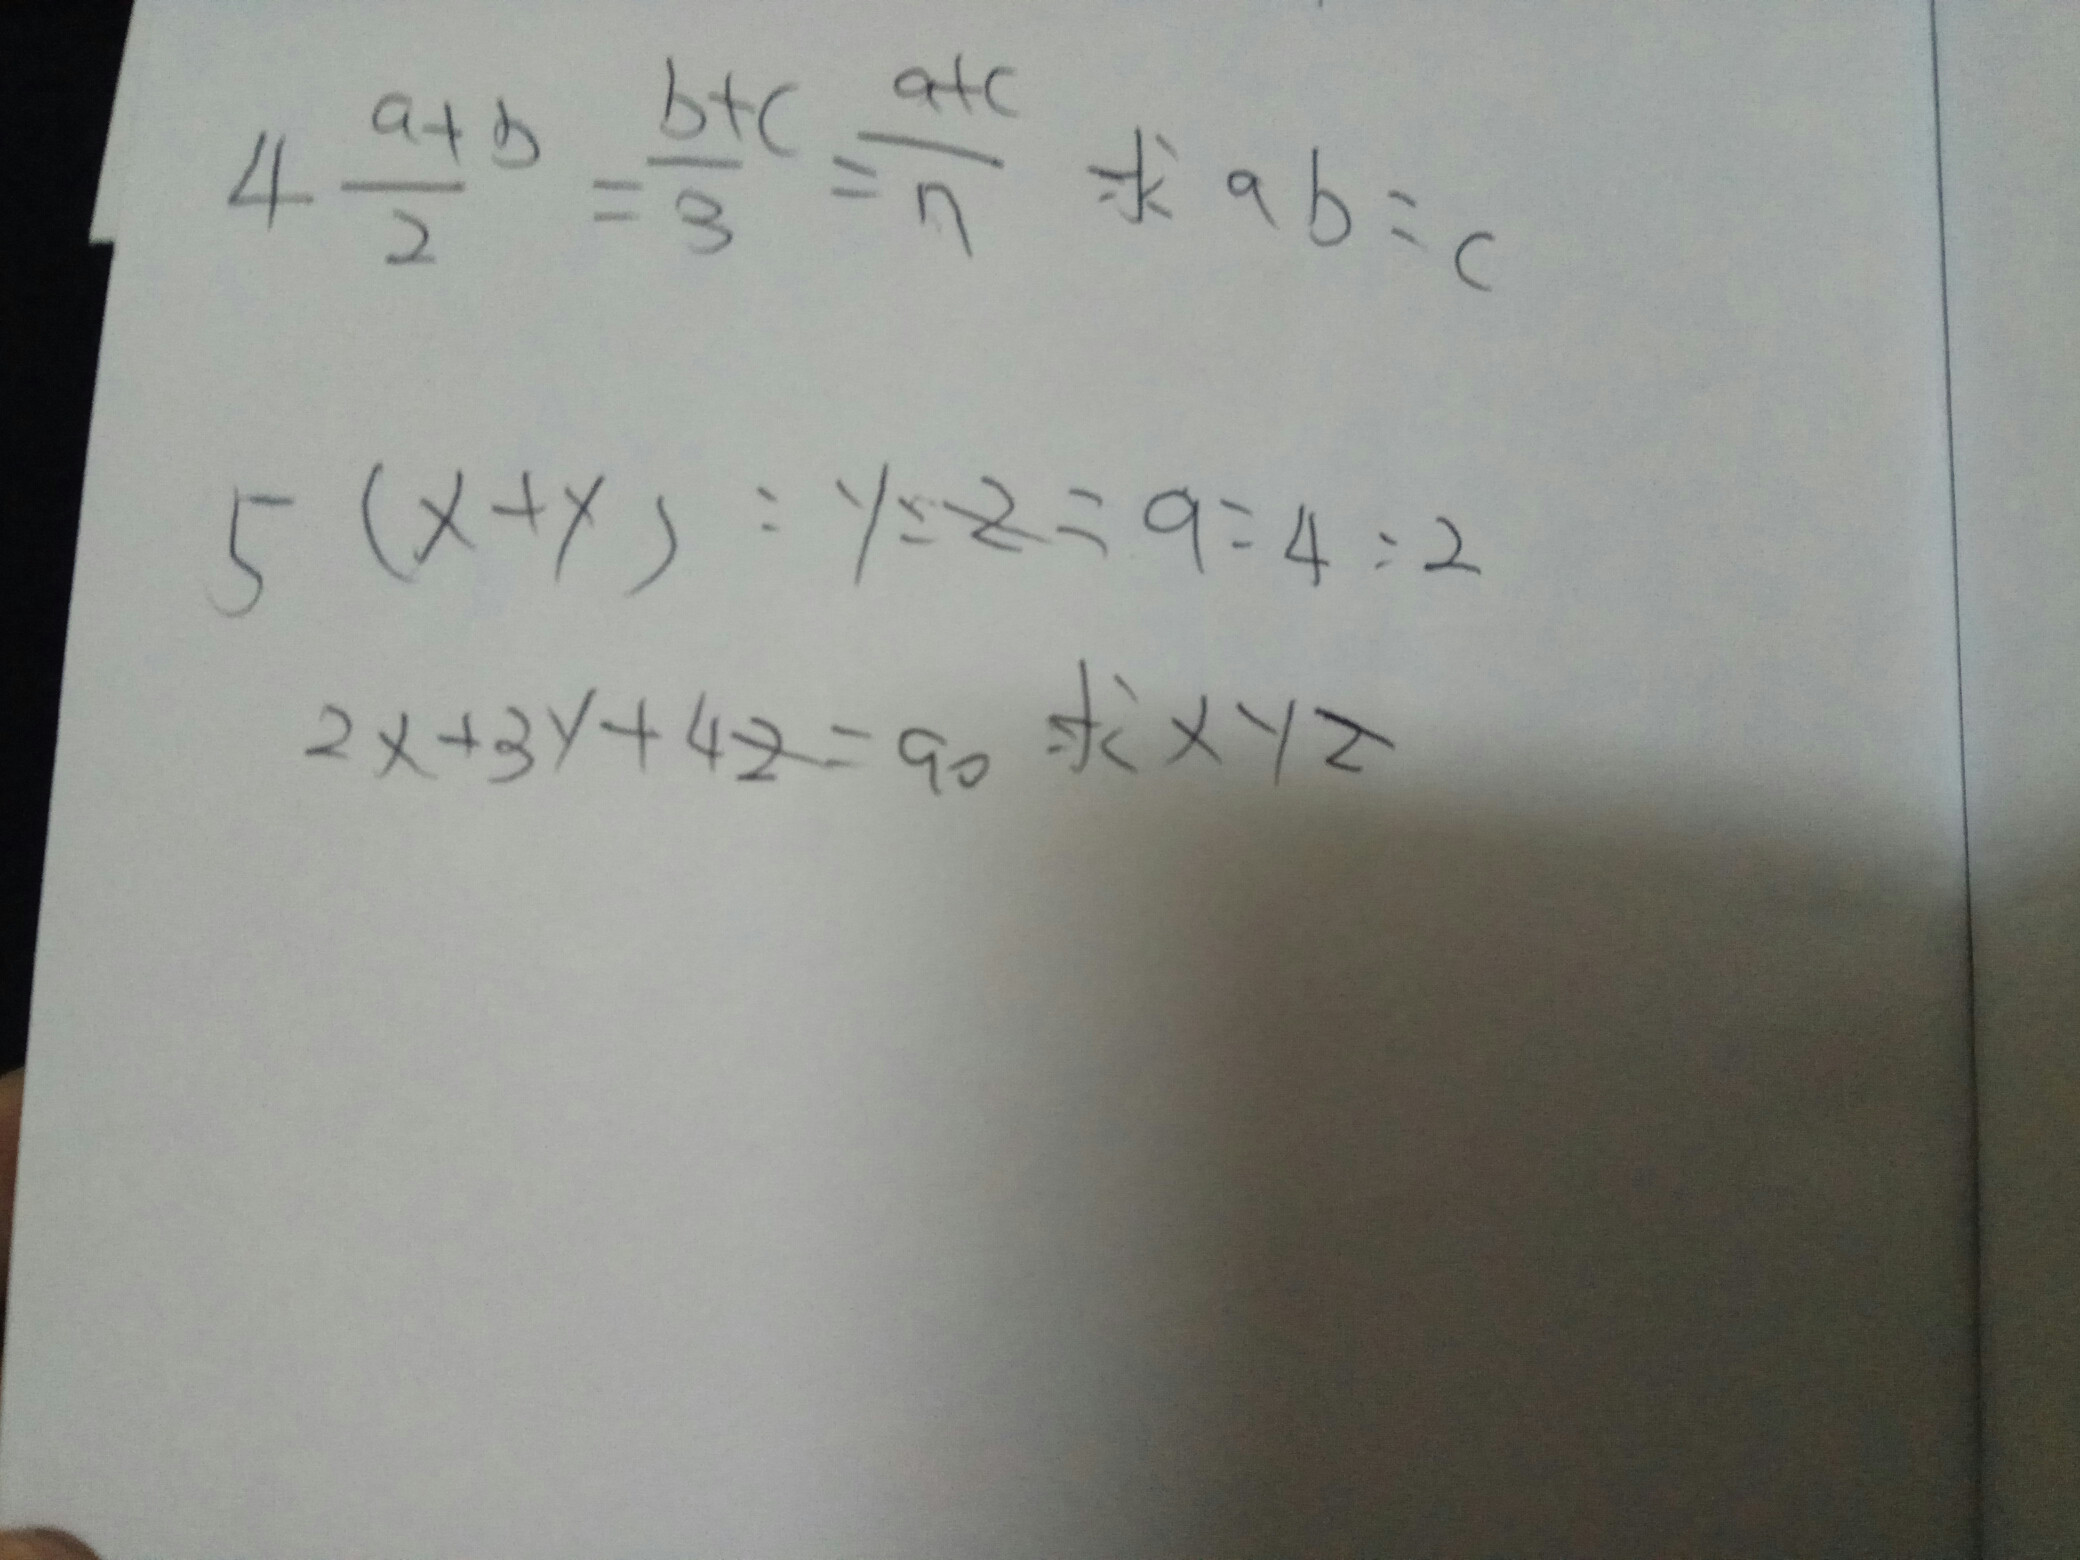 4 a+b/2 = b+c/3 = a+c/7 求 a b : c
5 (x+y) : y : z = 9 : 4 : 2
2x+3y+4z = 90 求 x y z